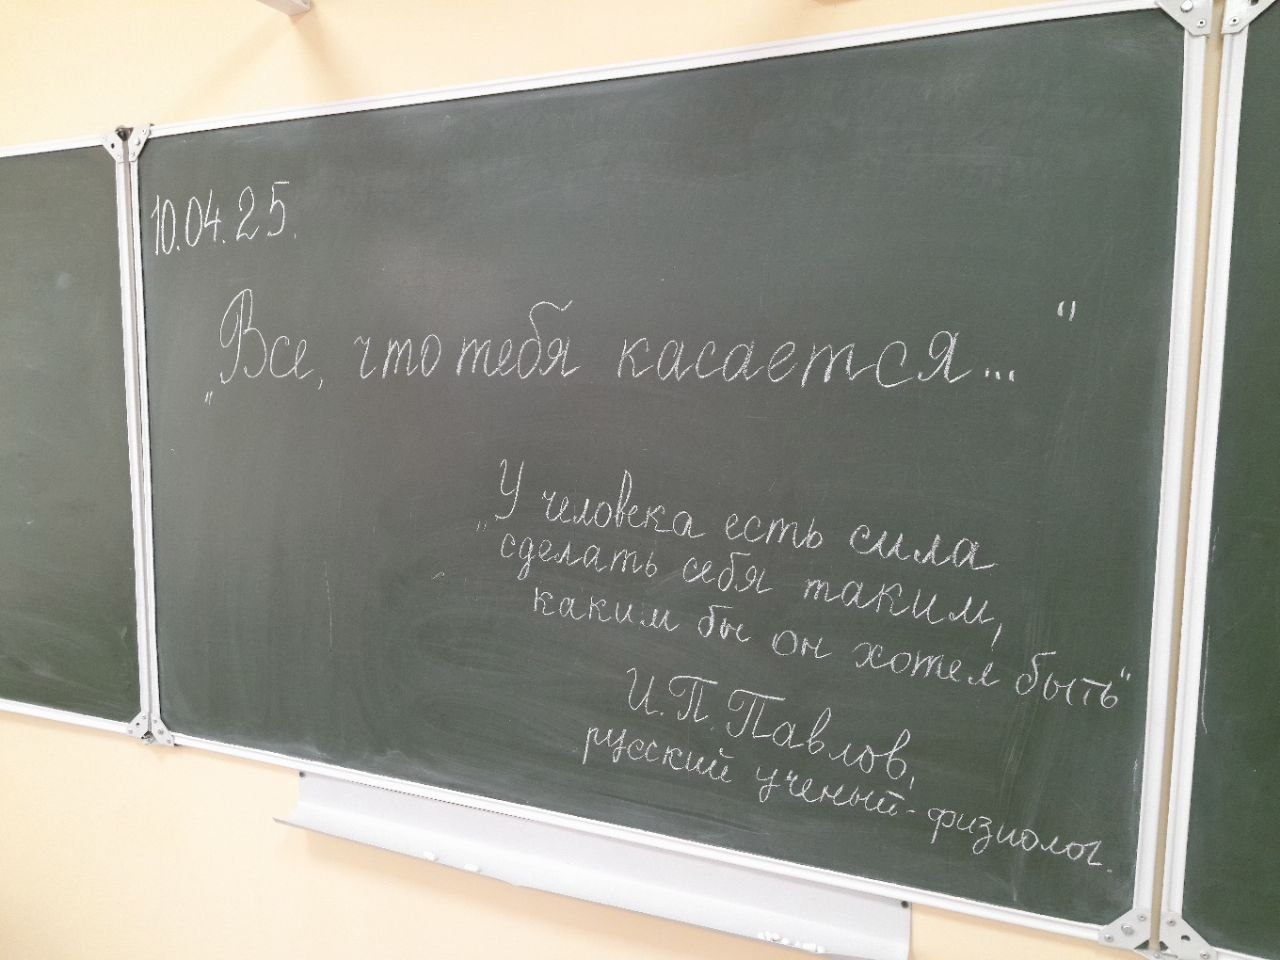 10.04.25.
„Все, что тебя касается..."
„У человека есть сила
сделать себя таким,
каким бы он хотел быть"
И.П. Павлов,
русский ученый-физиолог.